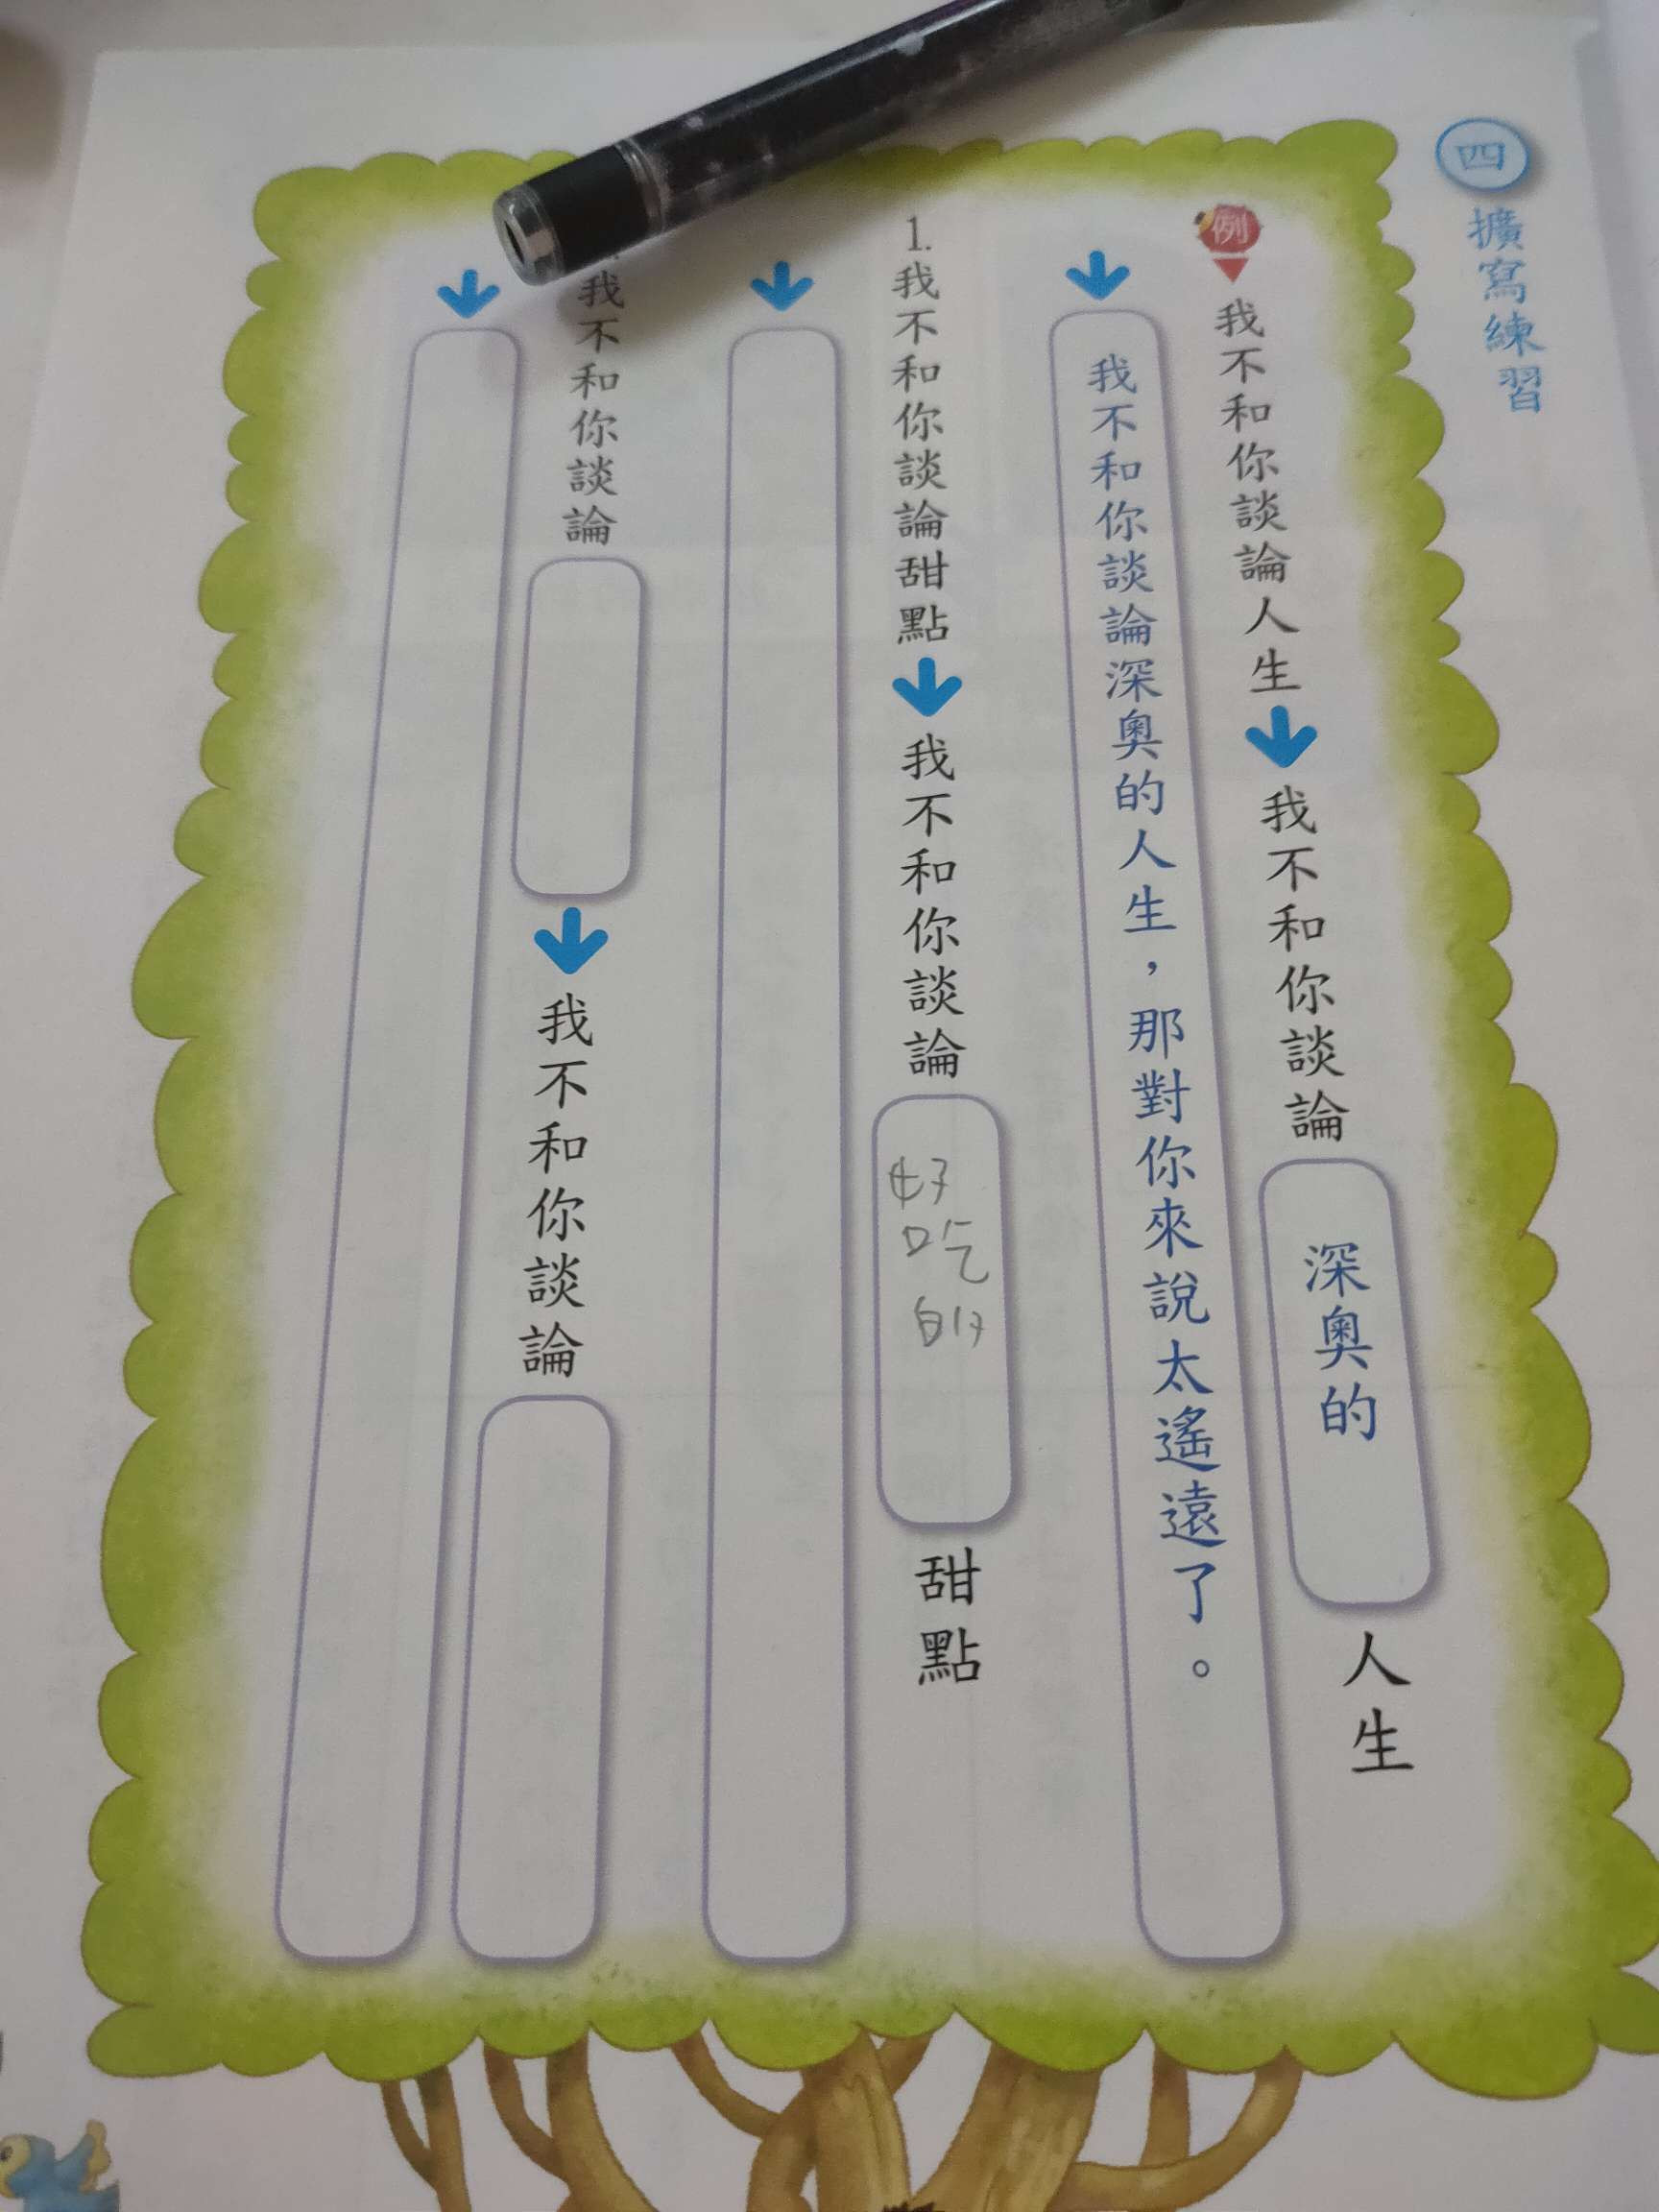 四 擴寫練習
例 我不和你談論人生 我不和你談論 深奧的 人生
我不和你談論深奧的人生，那對你來說太遙遠了。
1. 我不和你談論甜點 我不和你談論 好吃的 甜點
我不和你談論 我不和你談論